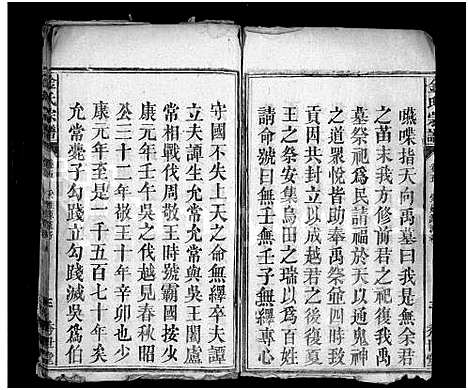 嚥喋指天向禹墓曰我是無余君
之苗末我方修前君之祀復我禹
墓祭祀爲民請福於天以通鬼神
之道眾悅皆助奉禹祭爺四時致
貢因共封立以成越君之後復夏
王之祭安集鳥田之瑞以爲百姓
請命號曰無壬無壬子無繹專心
守國不失上天之命無繹卒夫譚
立夫譚生允常允常與吳王闔廬
常相戰伐周敬王時號霸國按少
康元年壬午吳之伐越見春秋昭
公二十二年敬王十年辛卯也少
康元年至是一千五百七十年矣
允常薨子勾踐立勾踐滅吳爲伯
金氏宗譜